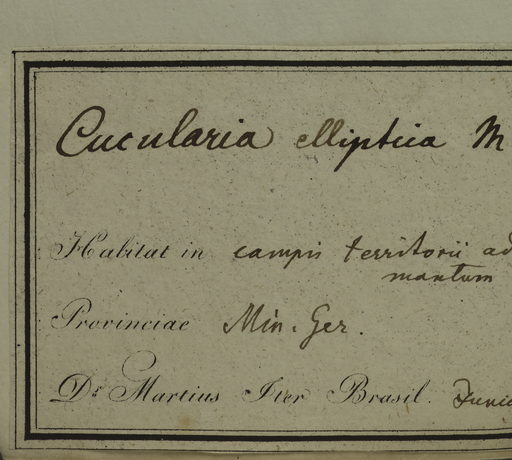 Cucularia elliptica M
Habitat in campis territorii ad
mantum
Provinciae Min. Ger.
Dr. Martius Iter Brasil. Junio